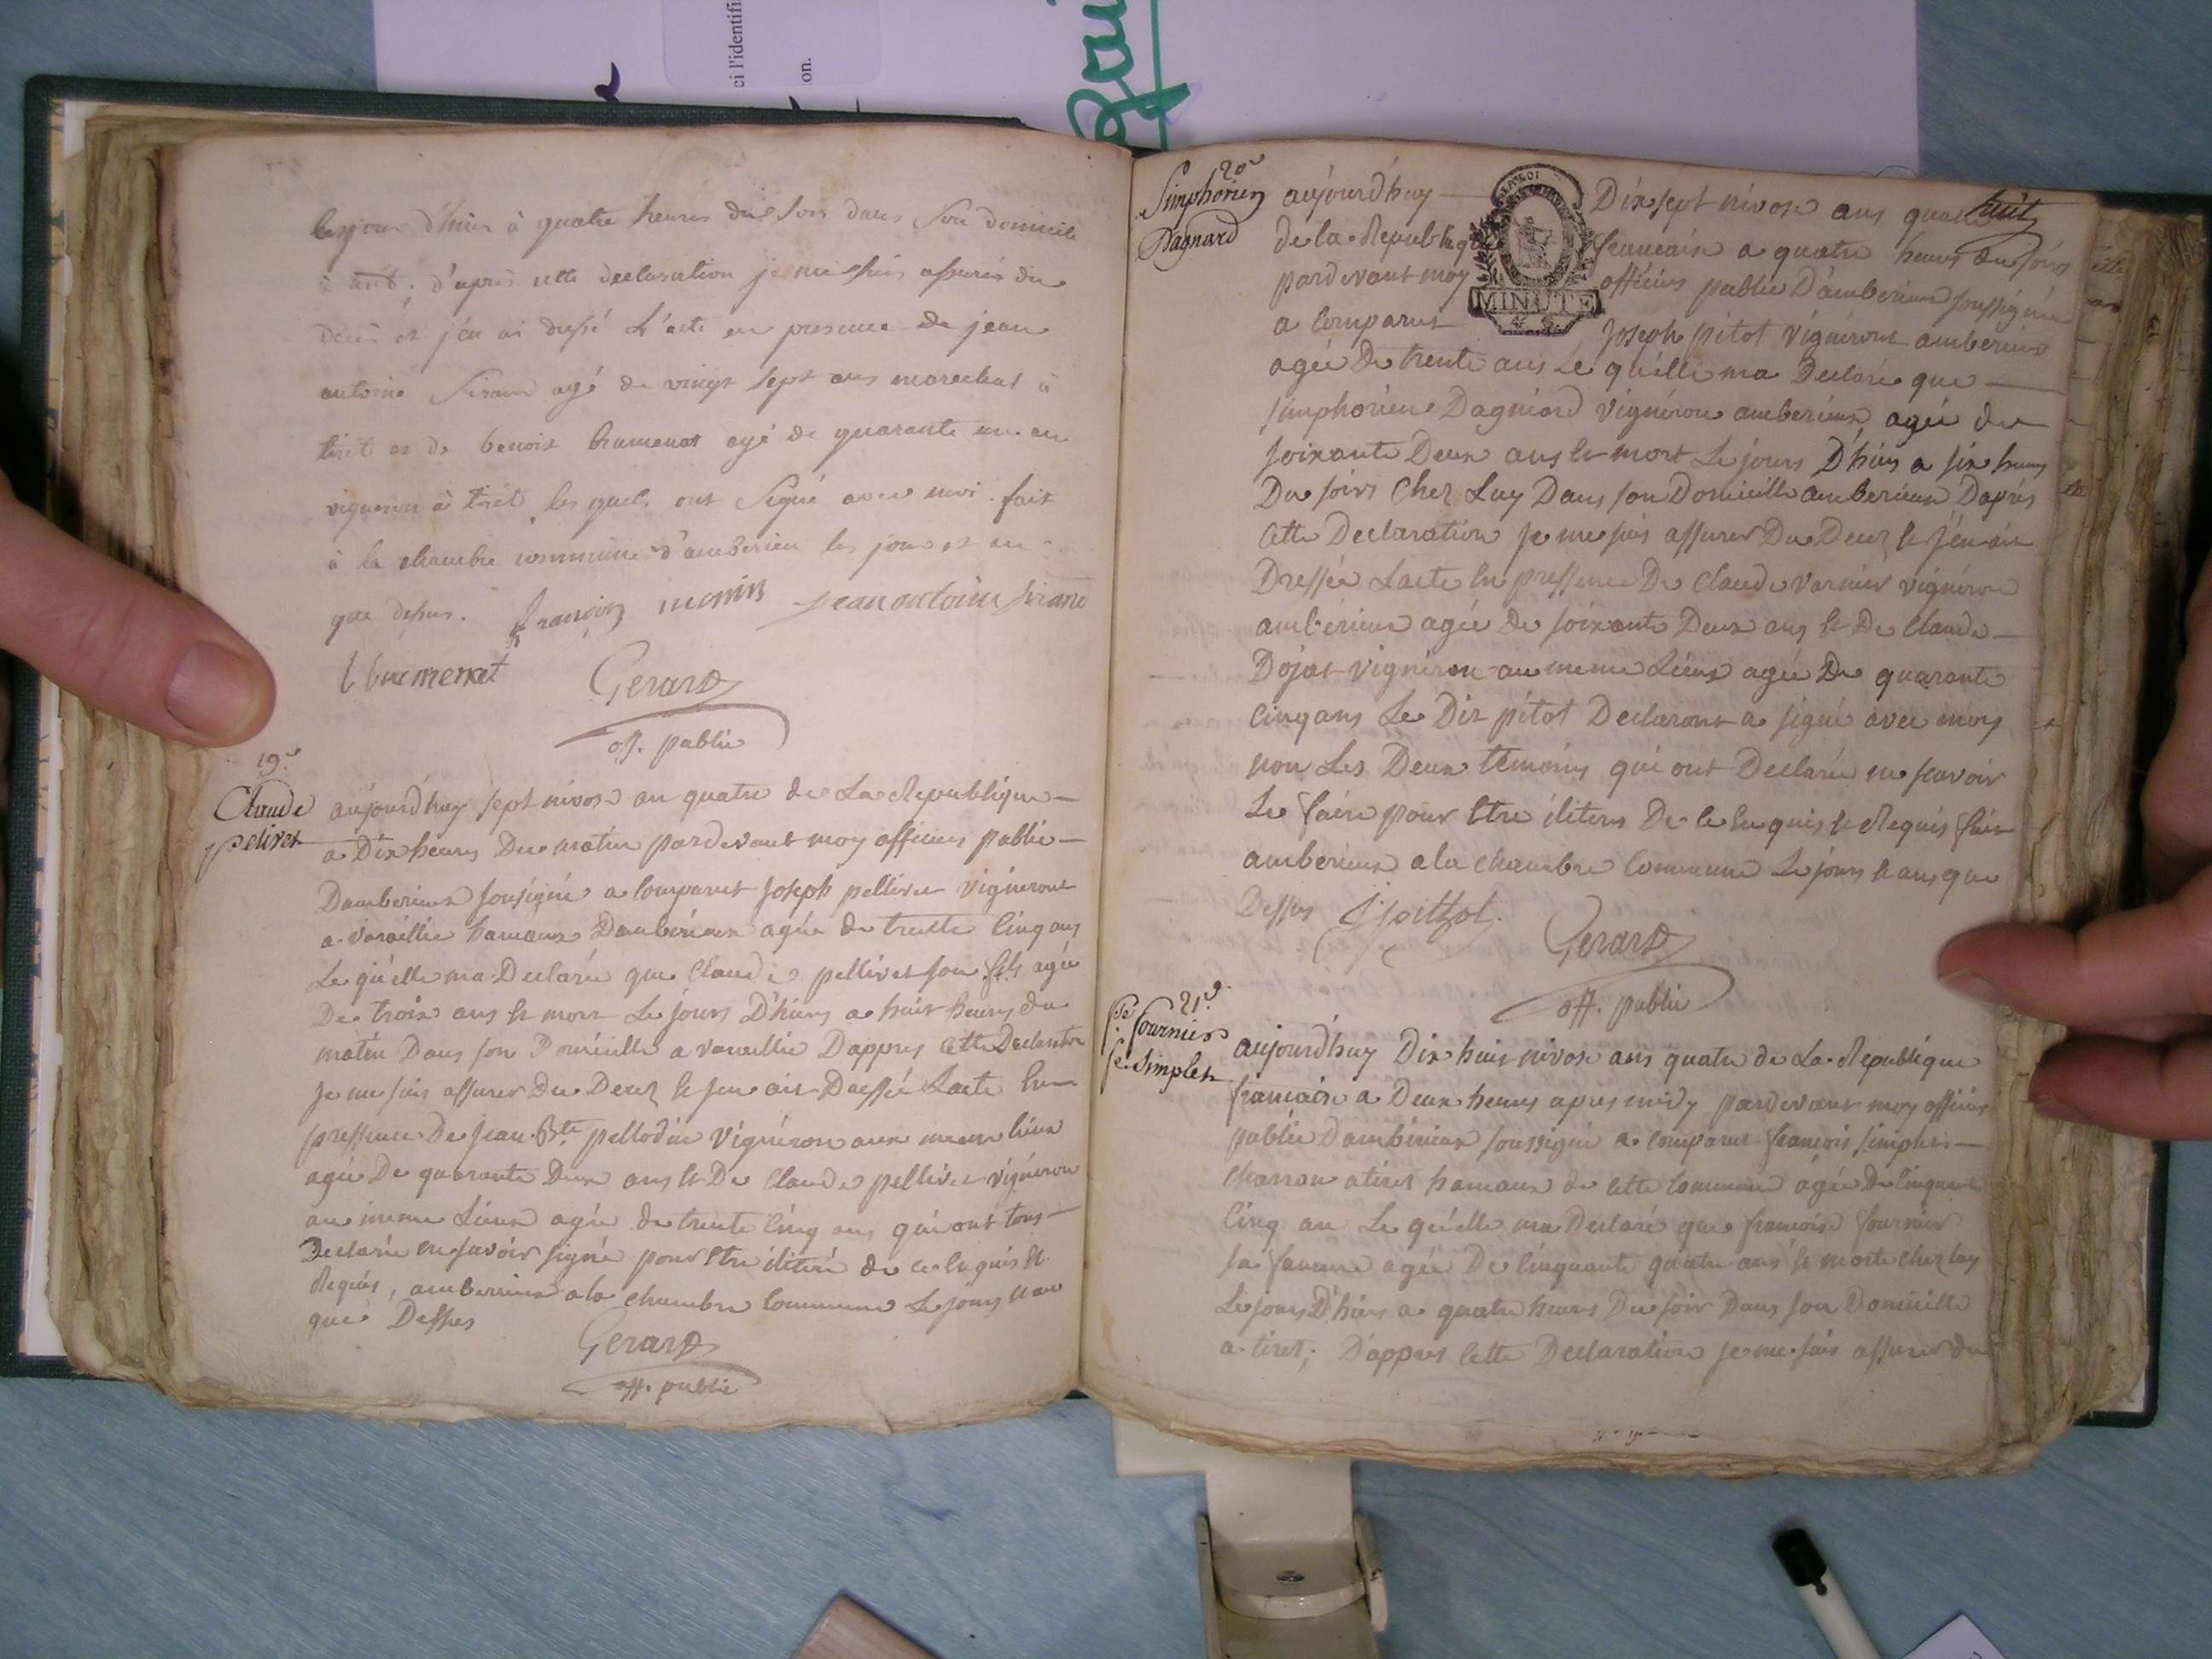 ci l'identifi
on.
les jour d'hier à quatre heures du soir dans son domicile
à tiret; d'après cette declaration je me suis assurés du
decès et j'en ai dressé L'acte en presence de jean
antoine Sirand agé de vingt sept ans marechal à
tiret et de benoit humenat agé de quarante un an
vigneron à tiret les quels ont signé avec moi. fait
à la chambre commune d'amberieu les jour et an
que dessus. françois monin jean antoine sirand
Gerard
off. public
19e
Claude
pelivet
aujourd'huy sept nivose an quatre de La Republique
a Dix heures Du matin pardevant moy officiers public
Damberieux sousigné a comparut joseph pellivet vigneront
a varaillie hamaux Dambérieux agée de trente cinq ans
Le quélle ma Declarée que Claude pellivet son fils agée
De troix ans et mort Le jours D'hiers a huit heures du
matin Dans son Domicille a varaillie Dappres cette Declaration
je me suis assurer Du Decez et jen ait Dressée Lacte En
pressence De jean Bte pellodin vigneron aux meme lieux
agée De quarante Deux ans et De Claude pellivet vigneron
au meme Lieux agée de trente cinq ans qui ont tous
Declarée ne savoir signé pour Etre iliteré de ce Enquis et
Requis, amberieux a la chambre commune Le jours et an
que Dessus
Gerard
off. public
20e
Simphorien
Dagnard
huit
aujourd'huy Dix sept nivose ans quatre
de la Republique francaise a quatre heures du soirs
pardevant moy officiers public D'amberieux soussignée
MINUTE
a comparut joseph pitot vigneront amberieux
agée De trente ans Le quélle ma Declarée que
simphorien Dagniard vigneron amberieux agée de
soixante Deux ans et mort Le jours D'hiers a six heures
Du soirs chez Luy Dans son Domicille amberieux D'aprés
cette Declaration je me suis assurer Du Decez et j'en ait
Dressée Lacte En pressence De claude varnier vigneron
amberieux agée de soixante Deux ans et De Claude
Dojat vigneron au meme Lieux agée De quarante
cinq ans Le Dit pitot Declarant a signé avec moy
non Les Deux témoins qui ont Declarée ne scavoir
Le faire pour Etre iliteres De ce Enquis et Requis fait
amberieux a la chambre commune Le jours et ans que
Dessus J pitot
Gerard
off. public
21e
fse fournier
fe Simplet
aujourd'huy Dix huit nivose ans quatre de La Republique
francaise a Deux heures apres midy pardevant moy officiers
public Dambérieux soussigné a comparut francois simplet
charron a tiret hamaux de cette commune agée De cinquante
cinq an Le quélle ma Declaré que francoise fournier
sa famme agée De cinquante quatre ans et morte chez luy
Le jours D'hiers a quatre heures Du soir Dans son Domicille
a tiret; D'appres cette Declaration je me suis assurer du